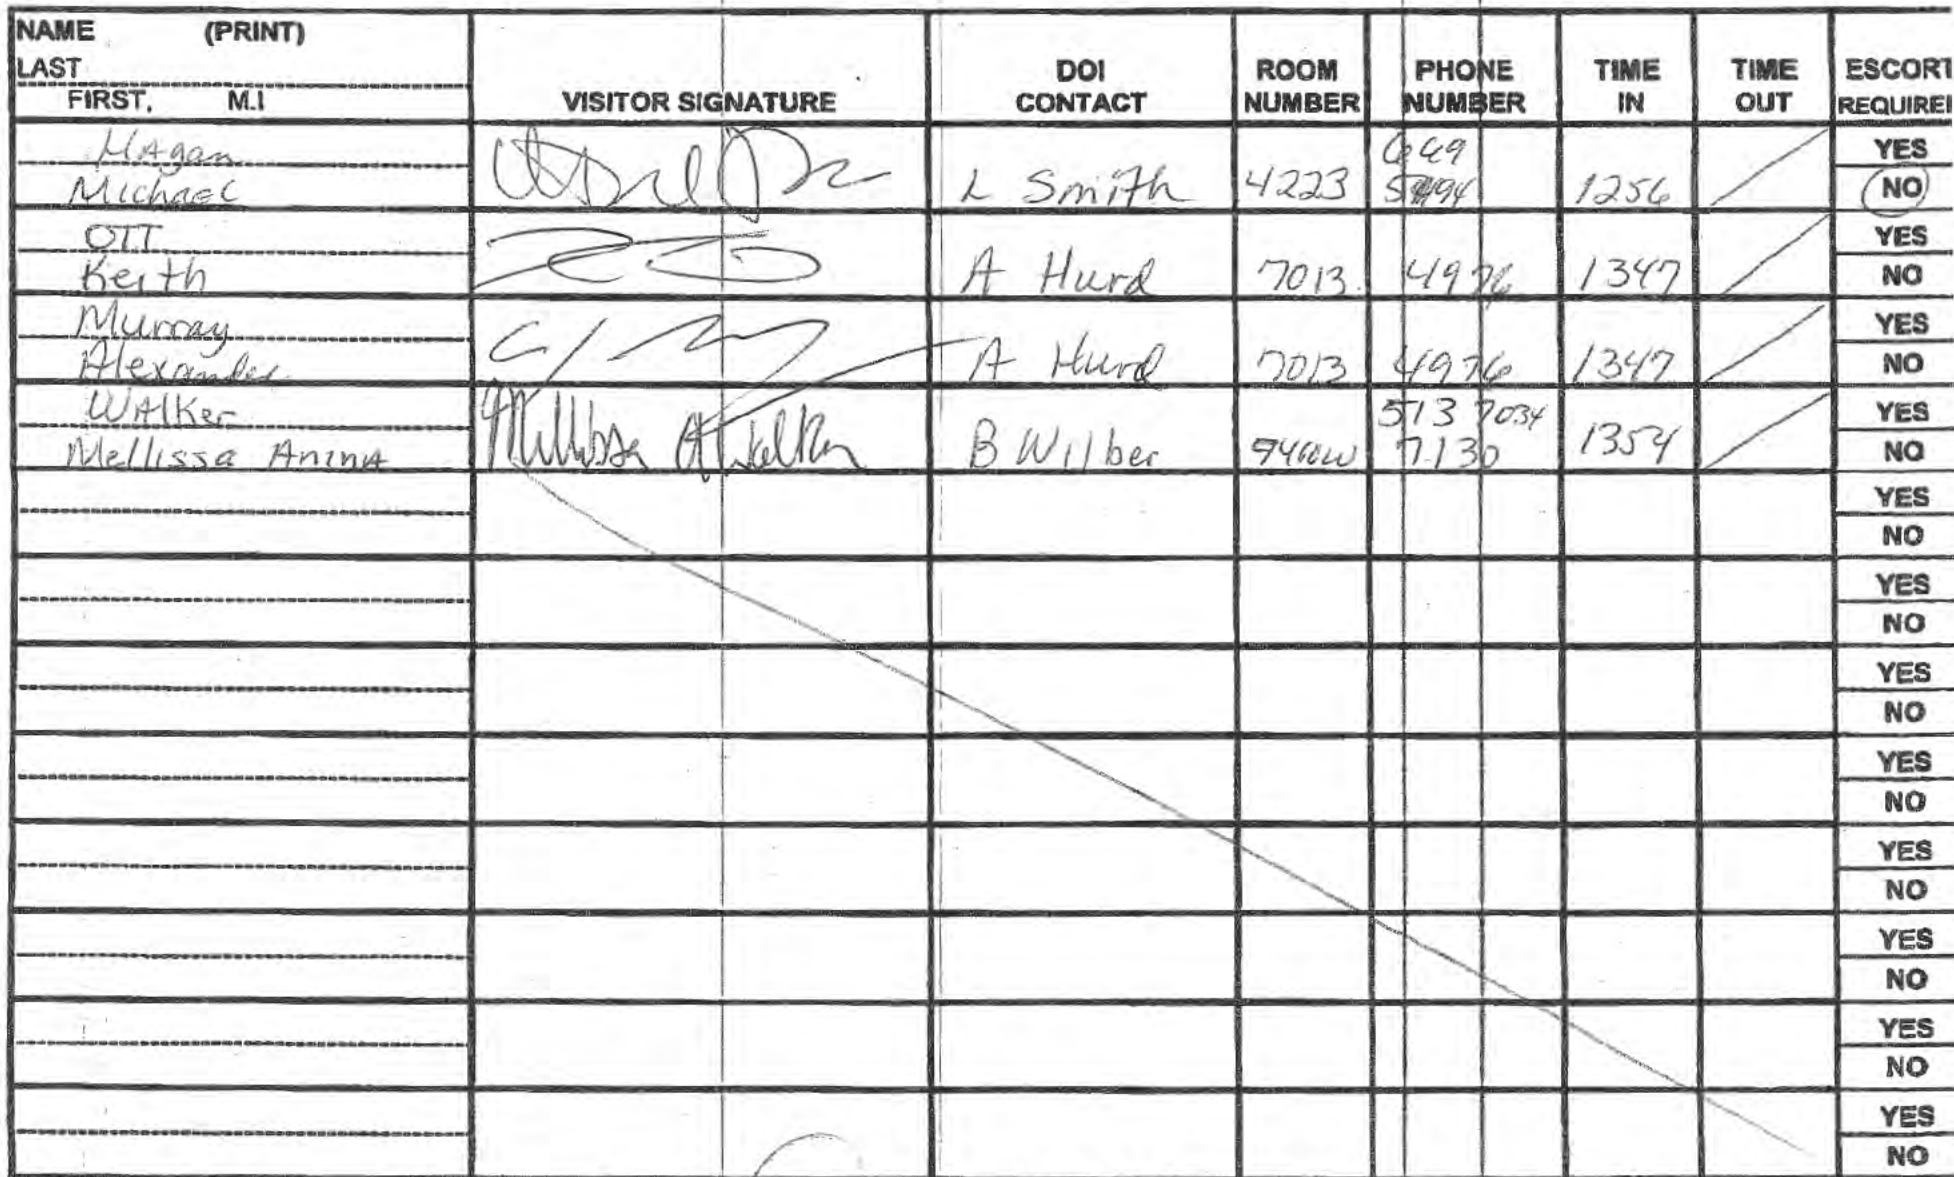 NAME (PRINT)
LAST
FIRST, M.I
VISITOR SIGNATURE
DOI CONTACT
ROOM NUMBER
PHONE NUMBER
TIME IN
TIME OUT
ESCORT REQUIRE
Michael
L Smith 4223 1256
YES
NO
OTT
Keith
A Hurd 7013 4976 1347
YES
NO
Murray
Alexander
A Hurd 7013 4976 1347
YES
NO
Walker
Mellissa Anina
Mellissa A Walker
B Wilber 513 7034 7130 1354
YES
NO
YES
NO
YES
NO
YES
NO
YES
NO
YES
NO
YES
NO
YES
NO
YES
NO